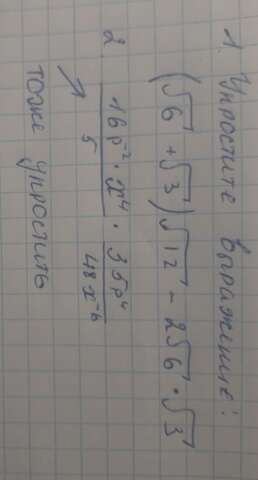 1. Упростите выражение:
(√6 + √3)√12 - 2√6 · √3
2 16p⁻² x⁴/5 · 35p⁴/48x⁻⁶
тоже упростить